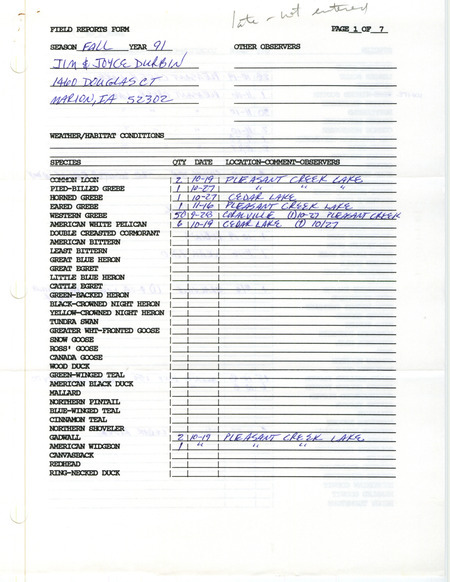 late - not entered
FIELD REPORTS FORM PAGE 1 OF 7
SEASON FALL YEAR 91 OTHER OBSERVERS
JIM & JOYCE DURBIN
1460 DOUGLAS CT
MARION, IA 52302
WEATHER/HABITAT CONDITIONS
SPECIES QTY DATE LOCATION-COMMENT-OBSERVERS
COMMON LOON 2 10-19 PLEASANT CREEK LAKE
PIED-BILLED GREBE 1 10-27 " " "
HORNED GREBE 1 10-27 CEDAR LAKE
EARED GREBE 1 11-16 PLEASANT CREEK LAKE
WESTERN GREBE 50 9-28 CORALVILLE (1) 10-27 PLEASANT CREEK
AMERICAN WHITE PELICAN 6 10-19 CEDAR LAKE (1) 10/27
DOUBLE CREASTED CORMORANT
AMERICAN BITTERN
LEAST BITTERN
GREAT BLUE HERON
GREAT EGRET
LITTLE BLUE HERON
CATTLE EGRET
GREEN-BACKED HERON
BLACK-CROWNED NIGHT HERON
YELLOW-CROWNED NIGHT HERON
TUNDRA SWAN
GREATER WHT-FRONTED GOOSE
SNOW GOOSE
ROSS' GOOSE
CANADA GOOSE
WOOD DUCK
GREEN-WINGED TEAL
AMERICAN BLACK DUCK
MALLARD
NORTHERN PINTAIL
BLUE-WINGED TEAL
CINNAMON TEAL
NORTHERN SHOVELER
GADWALL 2 10-19 PLEASANT CREEK LAKE
AMERICAN WIDGEON 1 " " "
CANVASBACK
REDHEAD
RING-NECKED DUCK